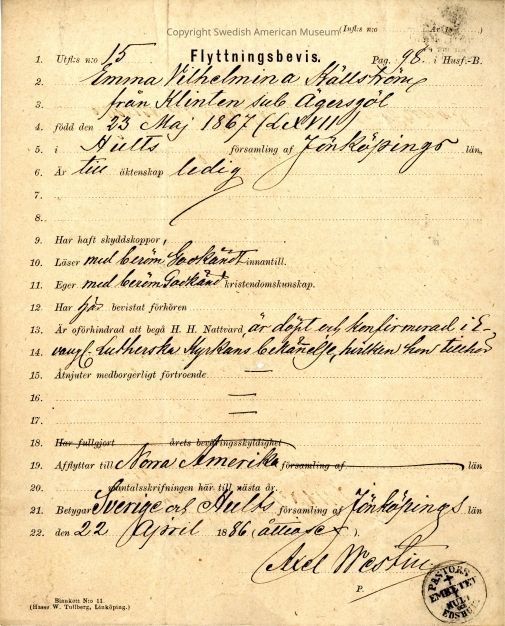 Copyright Swedish American Museum
(Infl: n:o År
1. Utfl: n:o 15 Flyttningsbevis. Pag. 98. i Husf.-B.
2. Emma Vilhelmina Källström
3. från Klinten sub Ägersgöl
4. född den 23 Maj 1867 (LXVII)
5. i Hults församling af Jönköpings län,
6. Är till äktenskap ledig
7.
8.
9. Har haft skyddskoppor,
10. Läser med beröm Godkändt innantill.
11. Eger med beröm Godkänd kristendomskunskap.
12. Har bevistat förhören
13. Är oförhindrad att begå H. H. Nattvard, är döpt och konfirmerad i E-
14. vang. Lutherska Kyrkans bekännelse, hvilken hon tillhör
15. Åtnjuter medborgerligt förtroende —
16. —
17. —
18. Har fullgjort årets beväringsskyldighet
19. Afflyttar till Norra Amerika församling af län
20. mantalsskrifningen här till nästa år.
21. Betygar Sverige och Hults församling af Jönköpings län
22. den 22 April 1886 (åttiosex).
Axel Westin
P.
PASTORS EMBETET I HULT EDSHULT
Blankett N:o 11
(Hanse W. Tullberg, Linköping.)